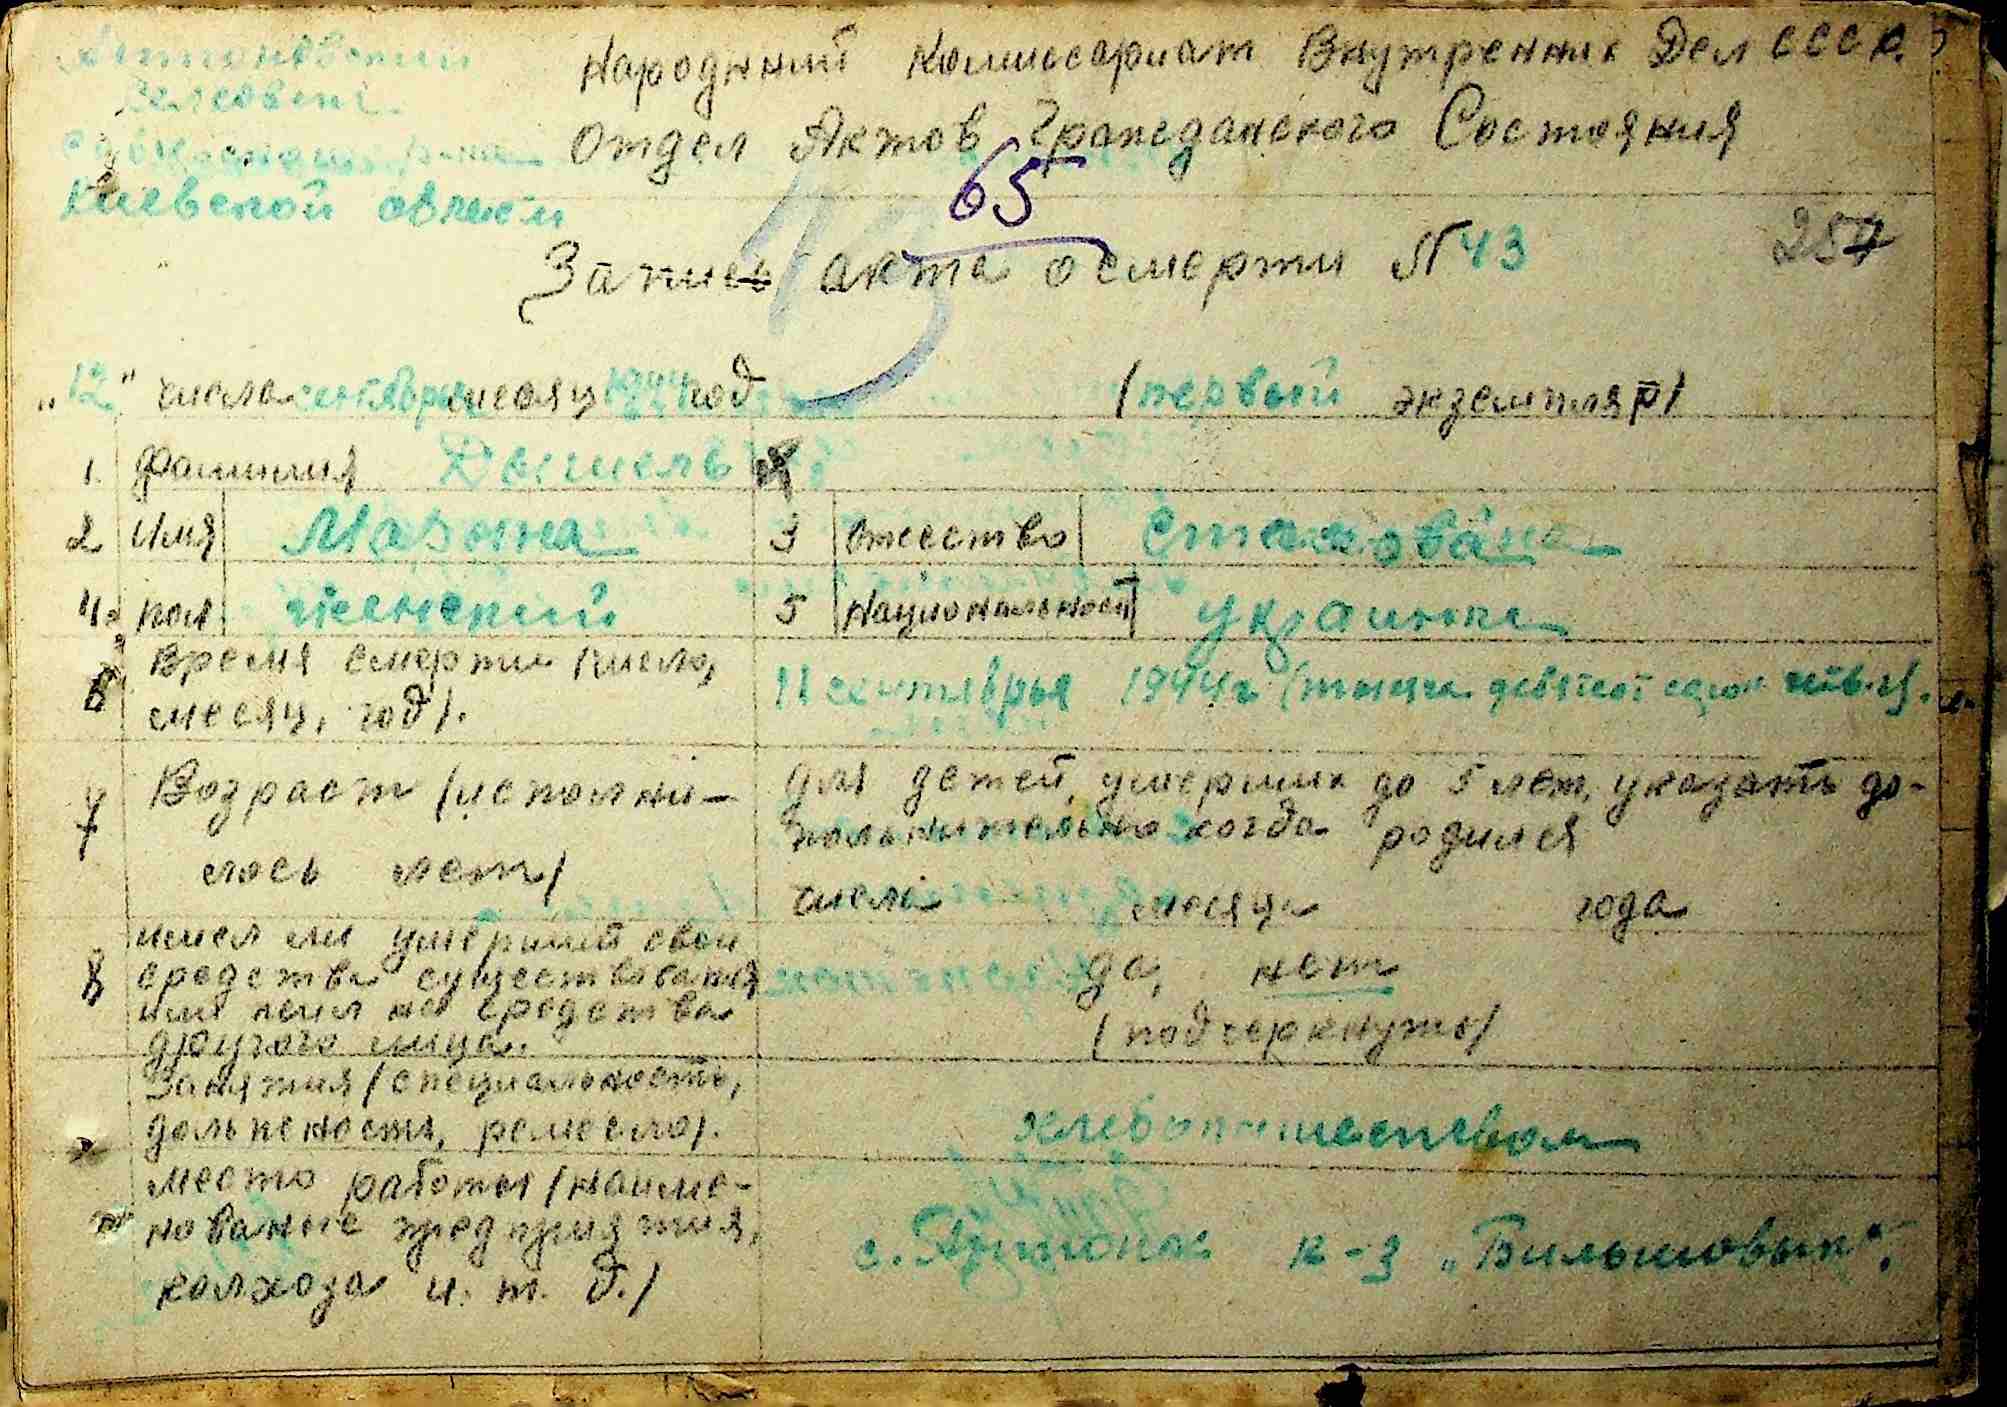 Народнний Комиссариат Внутренних Дел СССР.
Отдел Актов Гражданского Состояния
Киевской области
65
Запись акта о смерти N 43
257
"12" числа сентября месяц 1944 год
(первый экземпляр)
1. Фамилия
2 Имя 3 Отчество
4. пол женский 5 Национальност украинка
6 Время смерти (число, месяц, год).
11 сентября 1944 г. (тысяча девятсот сорок
7 Возраст (исполни-
лось лет)
для детей, умерших до 5 лет, указать до-
полнительно когда родился
числа месяца года
8 имел ли умерший свои
средства существования
или жил на средства
другого лица.
да, нет
(подчеркнуть)
Занятия (специальность,
должность, ремесло).
хлебопашеством
место работы (наиме-
нование предприятия,
колхоза и. т. д.)
с. к-з "Бильшовык".